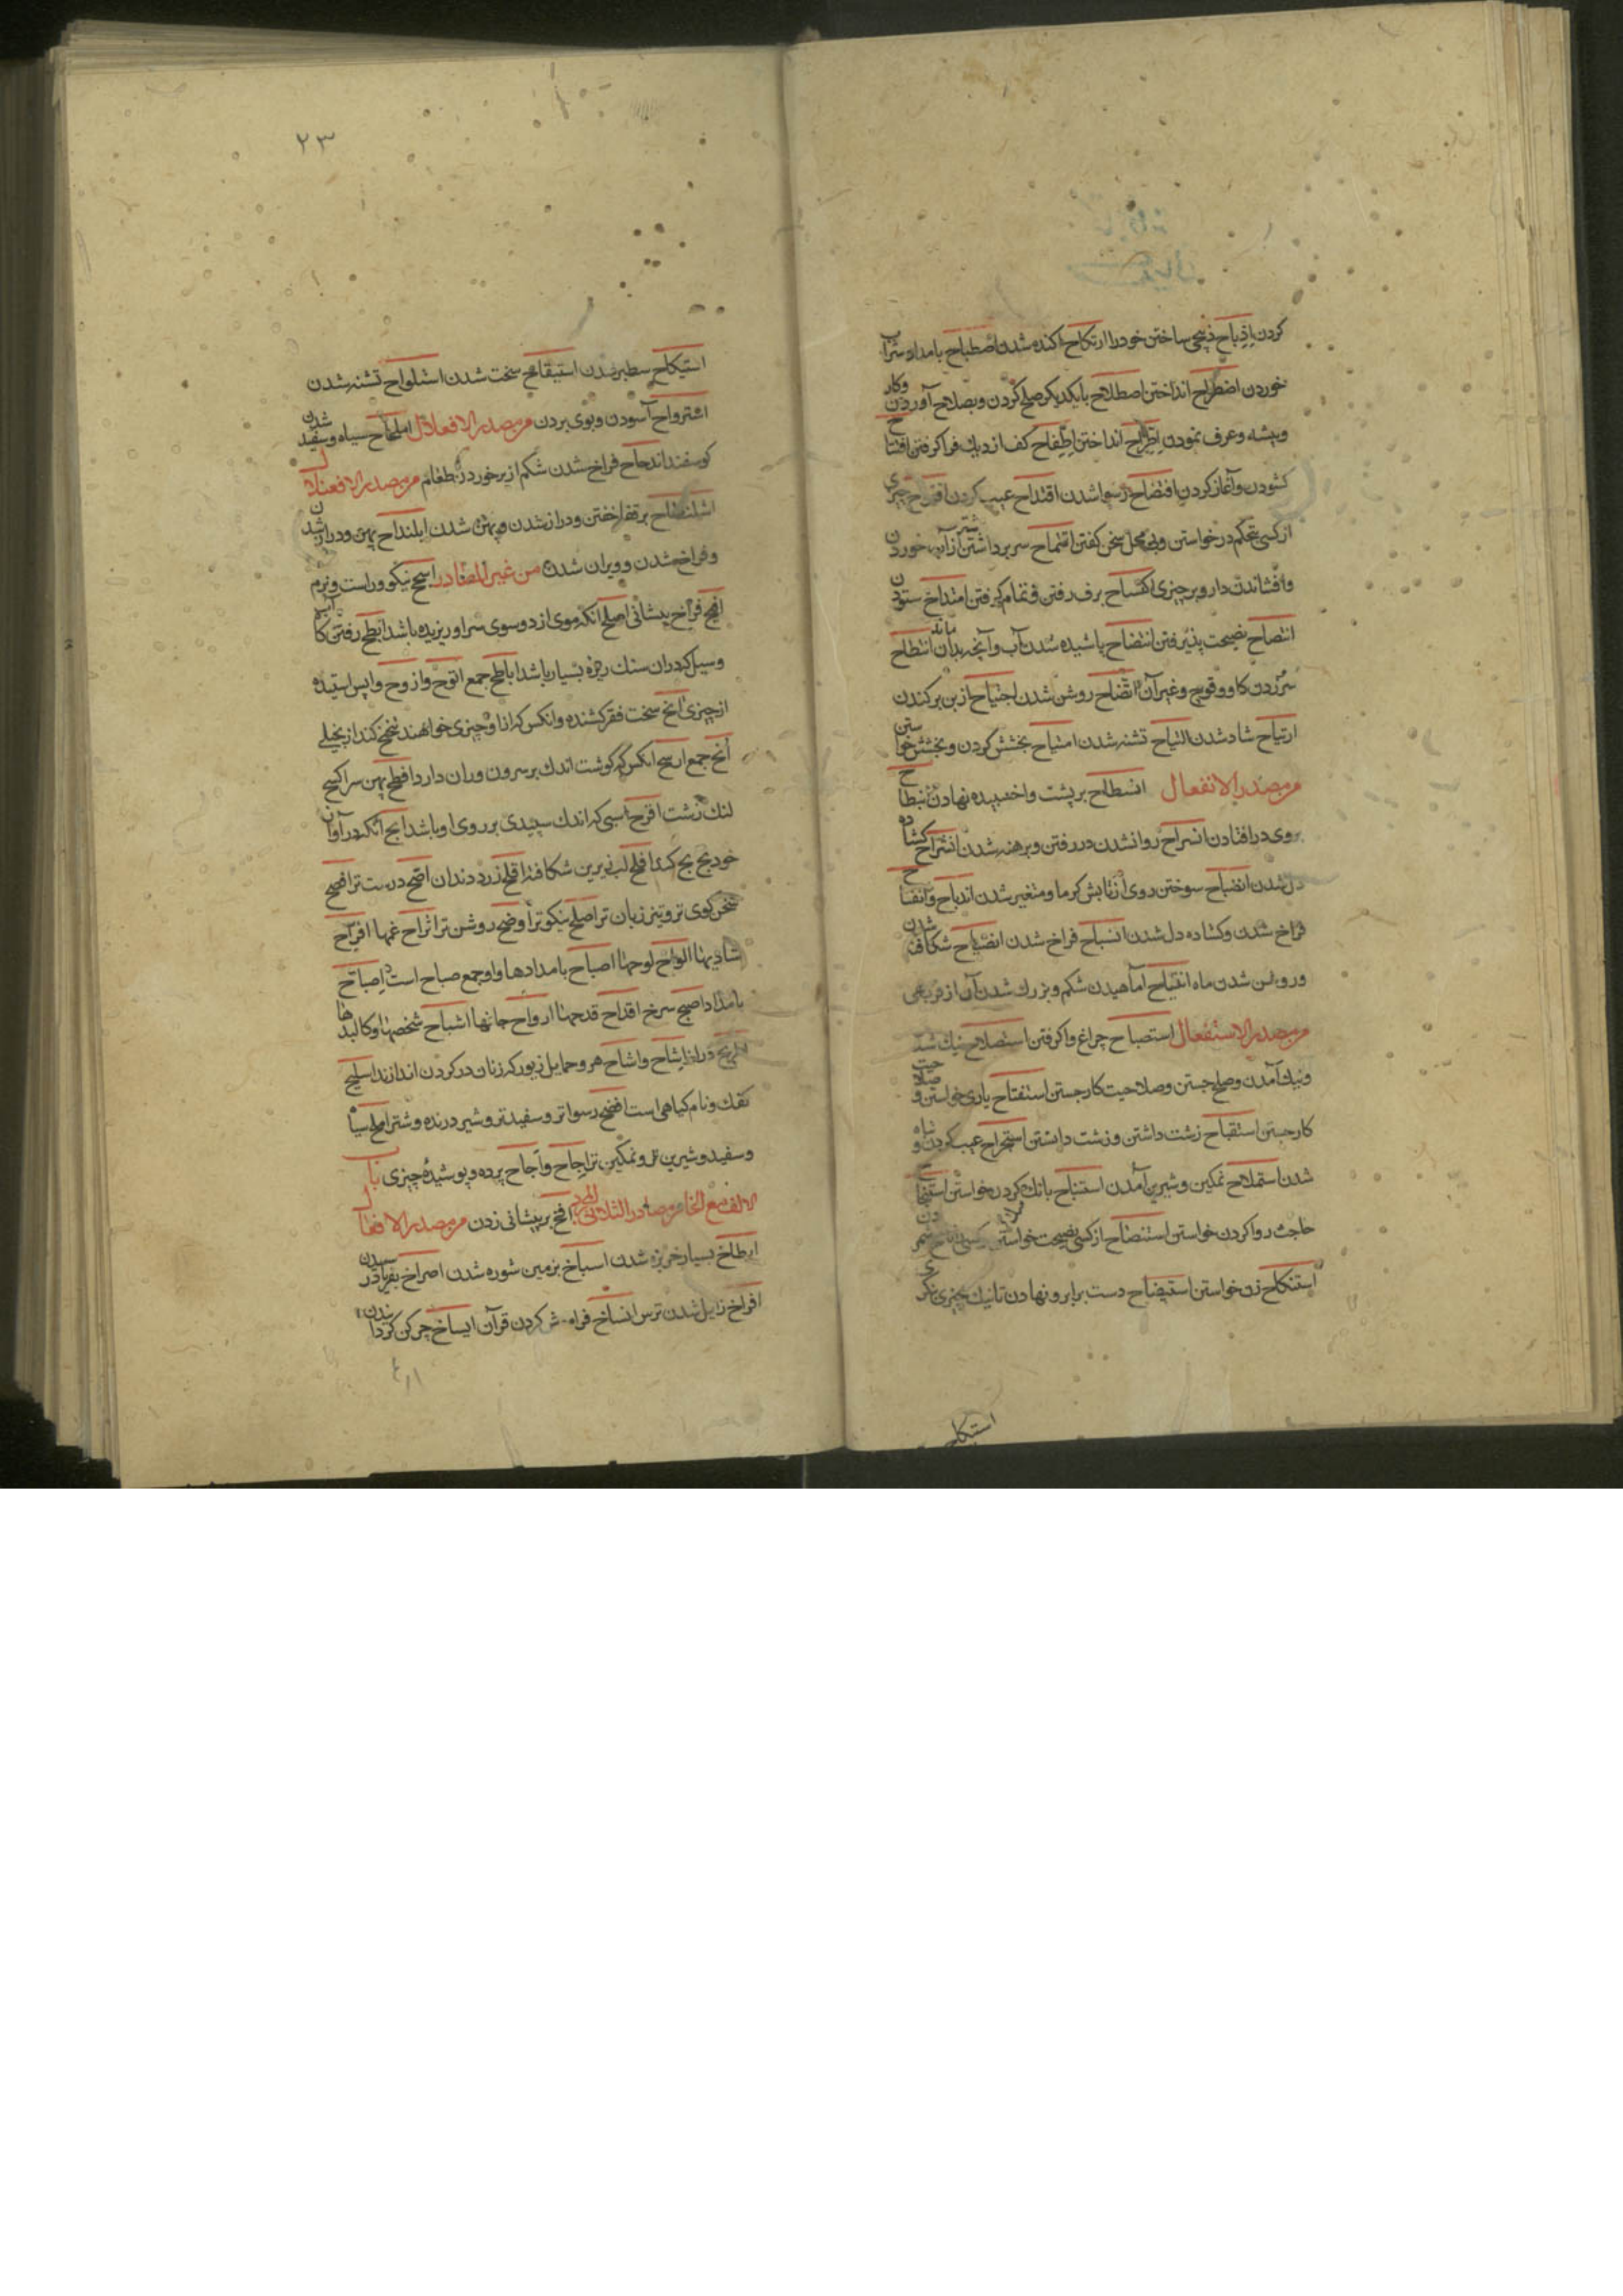 کردن اِذِّباح ذبیحی ساختن خود را ارتکاح اکنده شدن اصطباح بامداد شراب
خوردن اضطراح انداختن اصطلاح با یکدیگر صلح کردن و بصلاح آوردن وکار
وپیشه وعرف نمودن اطّراح انداختن اطّفاح کف از دیك فرا کرفتن افتتاح
کشودن وآغاز کردن افتضاح رسوا شدن اقتداح عیب کردن اقتراح چیزی
از کسی بتحکم درخواستن وبی محل سخن کفتن اقتماح سر برداشتن شتر از آب خوردن
وافشاندن دارو بر چیزی اکتساح برف رفتن و تمام کرفتن امتداح ستودن
انتصاح نصیحت پذیرفتن انتضاح پاشیده شدن آب وآنچه بدان ماند انتطاح
سُرُزدن کاو وقوچ وغیر آن اتّضاح روشن شدن اجتیاح از بن برکندن
ارتیاح شاد شدن التیاح تشنه شدن امتیاح بخشش کردن و بخشش خواستن
من مصدر الانفعال انسطاح بر پشت واخسپیده نهادن انبطاح
بروی درافتادن انسراح روانشدن در رفتن وبرهنه شدن انشراح کشاده
دل شدن انضباح سوختن روی از تابش کرما ومتغیر شدن اندیاح وانفتاح
فراخ شدن وکشاده دل شدن انسباح فراخ شدن انصیاح شکافته شدن
وروشن شدن ماه انفیاح آماهیدن شکم وبزرك شدن آن از فربهی
من مصدر الاستفعال استصباح چراغ واکرفتن استصلاح نیك شدن
ونیك آمدن وصلح جستن وصلاحیت کار جستن استفتاح یاری خواستن و صلاحیت
کار جستن استقباح زشت داشتن وزشت دانستن استجراح عیب کردن و تباه
شدن استملاح نمکین وشیرین آمدن استنباح بانك کردن خواستن استنجاح
حاجت روا کردن خواستن استنصاح از کسی نصیحت خواستن
استنکاح زن خواستن استیضاح دست برابرو نهادن تا نیك چیزی نکرد
استیکاح
۲۳
استیکاح سطبر شدن استیقاح سخت شدن استلواح تشنه شدن
استرواح آسودن وبوی بردن من مصدر الافعلال املحاح سیاه وسفید شدن
کوسفند اندحاح فراخ شدن شکم از پر خوردن طعام من مصدر الافعنلال
اسلنطاح بر قفا خفتن ودراز شدن وپهن شدن ابلنداح پهن ودراز شدن
وفراخ شدن وویران شدن من غیر المصادر اسجح نیکو وراست ونرم
افیح فراخ پیشانی اصلح انکه موی از دو سوی سر او ریزیده باشد ابطح رفتن کاه آب
وسیل که در ان سنك ریزه بسیار باشد اباطح جمع انوح وازوح واپس استیده
از چیزی انح سخت فقر کشنده وانکس که از او چیزی خواهند تنحنح کند از بخیلی
اُنح جمع ارسح انکس که کوشت اندك بر سرون وران دارد افطح پهن سر اکسح
لنك زشت اقرح اسبی که اندك سپیدی بر روی او باشد ابح آنکه در آواز
خود بح بح کند افلح لب زیرین شکافته اقلح زرد دندان اصح درست تر افصح
سخن کوی تر وتیز زبان تر اصلح نیکو تر اوضح روشن تر اتراح غمها افراح
شادیها الواح لوحها اصباح بامدادها واو جمع صباح است اِصباح
بامداد اصبح سرخ اقداح قدحها ارواح جانها اشباح شخصها وکالبدها
دراز اِشاح واشاح هر دو حمایل زیور که زنان در کردن اندازند اسلیح
نقك ونام کیاهی است افضح رسواتر وسفیدتر وشیر درنده وشتر املح سیاه
وسفید وشیرین تر ونمکین تر اجاح واَجاح پرده وپوشیدۀ چیزی باب
الالف مع الخا من مصادر الثلاثی المجرد افخ بر پیشانی زدن من مصدر الافعال
ابطاخ بسیار خربزه شدن اسباخ بزمین شوره شدن اصراخ بفریاد رسیدن
افراخ زایل شدن ترس انساخ فراموش کردن قرآن ایساخ چرکن کردانیدن